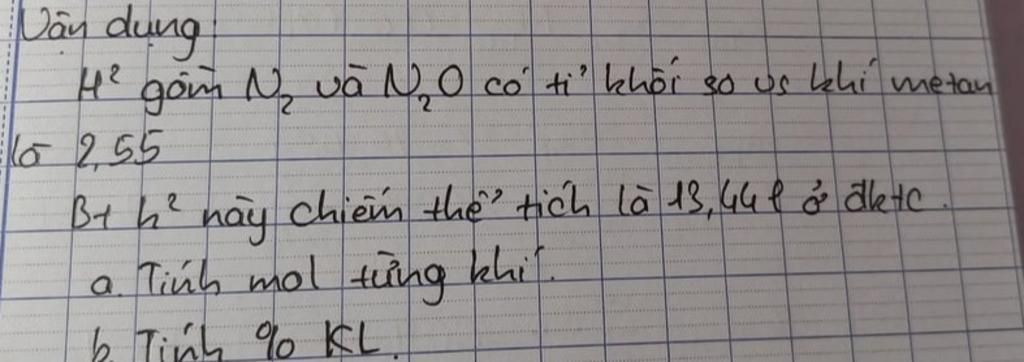 Vận dụng:
H² gồm N₂ và N₂O có tỉ khối so vs khí metan
là 2,55
Bt h² này chiếm thể tích là 13,44l ở đktc.
a. Tính mol từng khí.
b. Tính % KL.